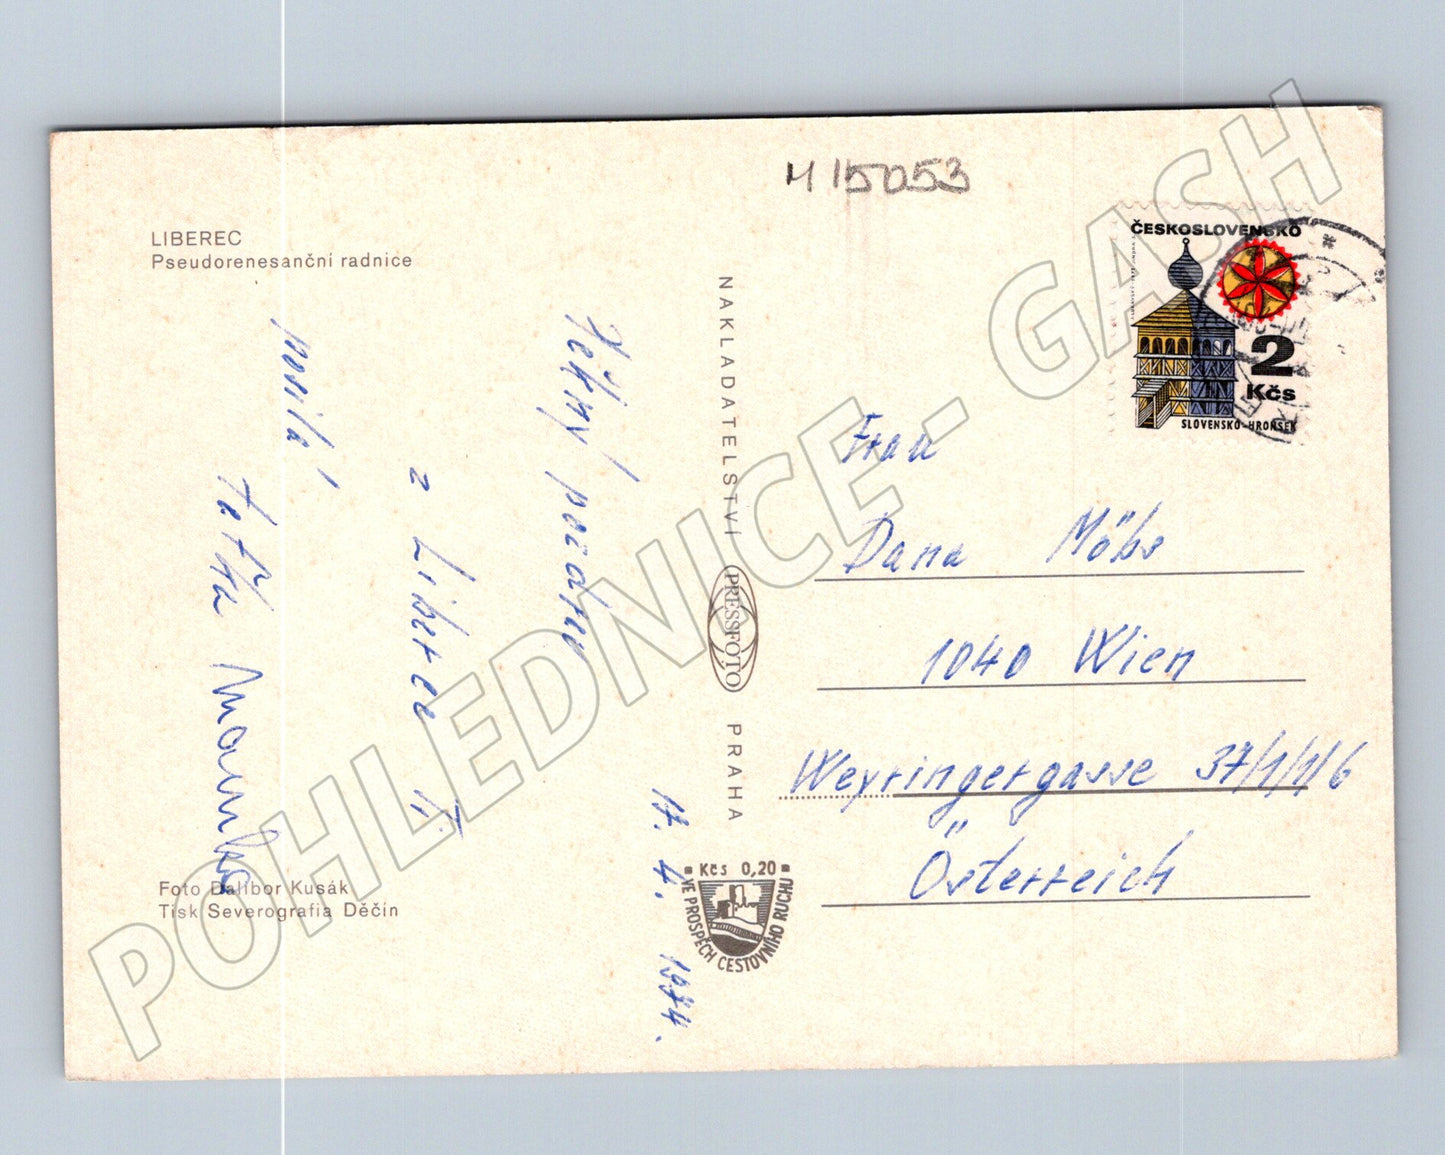 M 15053
LIBEREC
Pseudorenesanční radnice
ČESKOSLOVENSKO
2
Kčs
SLOVENSKO-HRONSEK
Pěkný pozdrav
z Liberce
posílá
tetka
11. 4. 1974.
NAKLADATELSTVÍ
PRESSFOTO
PRAHA
Frau
Dana Möbs
1040 Wien
Weyringergasse 37/1/1/6
Österreich
Foto Dalibor Kusák
Tisk Severografia Děčín
Kčs 0,20
VE PROSPĚCH CESTOVNÍHO RUCHU
POHLEDNICE - GASH